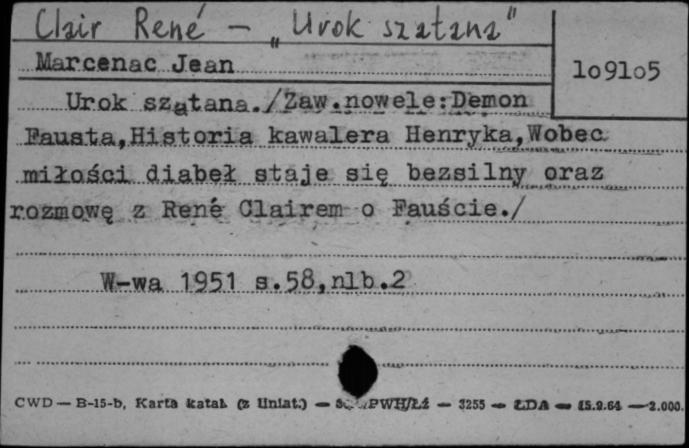 Clair René – „Urok szatana"
Marcenac Jean
1o91o5
Urok szatana./Zaw.nowele:Demon
Fausta,Historia kawalera Henryka,Wobec
miłości diabeł staje się bezsilny oraz
rozmowę z René Clairem o Fauście./
W-wa 1951 s.58,nlb.2
CWD — B-15-b, Karta katal. (z Uniat.) — PWH/Łź — 3255 — ŁDA — 15.9.64 — 2.000.